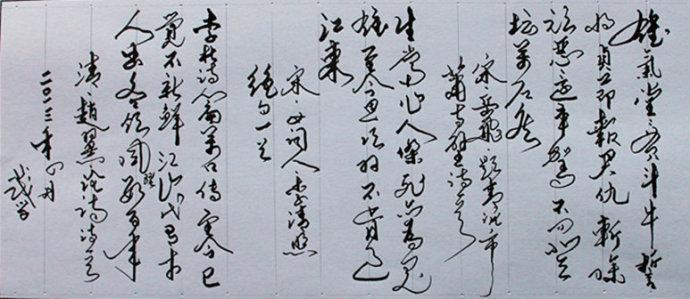 雄氣堂堂貫斗牛誓
將貞節報君仇斬除
頑惡還車駕不問登
壇萬户侯
宋岳飛題青泥市
蕭寺壁詩一首
生當作人傑死亦為鬼
雄至今思項羽不肯過
江東
宋女词人李清照
絶句一首
李杜詩篇萬口傳至今已
覺不新鮮江山代有才
人出各領風騷數百年
清趙翼論詩詩一首
二〇一三年四月